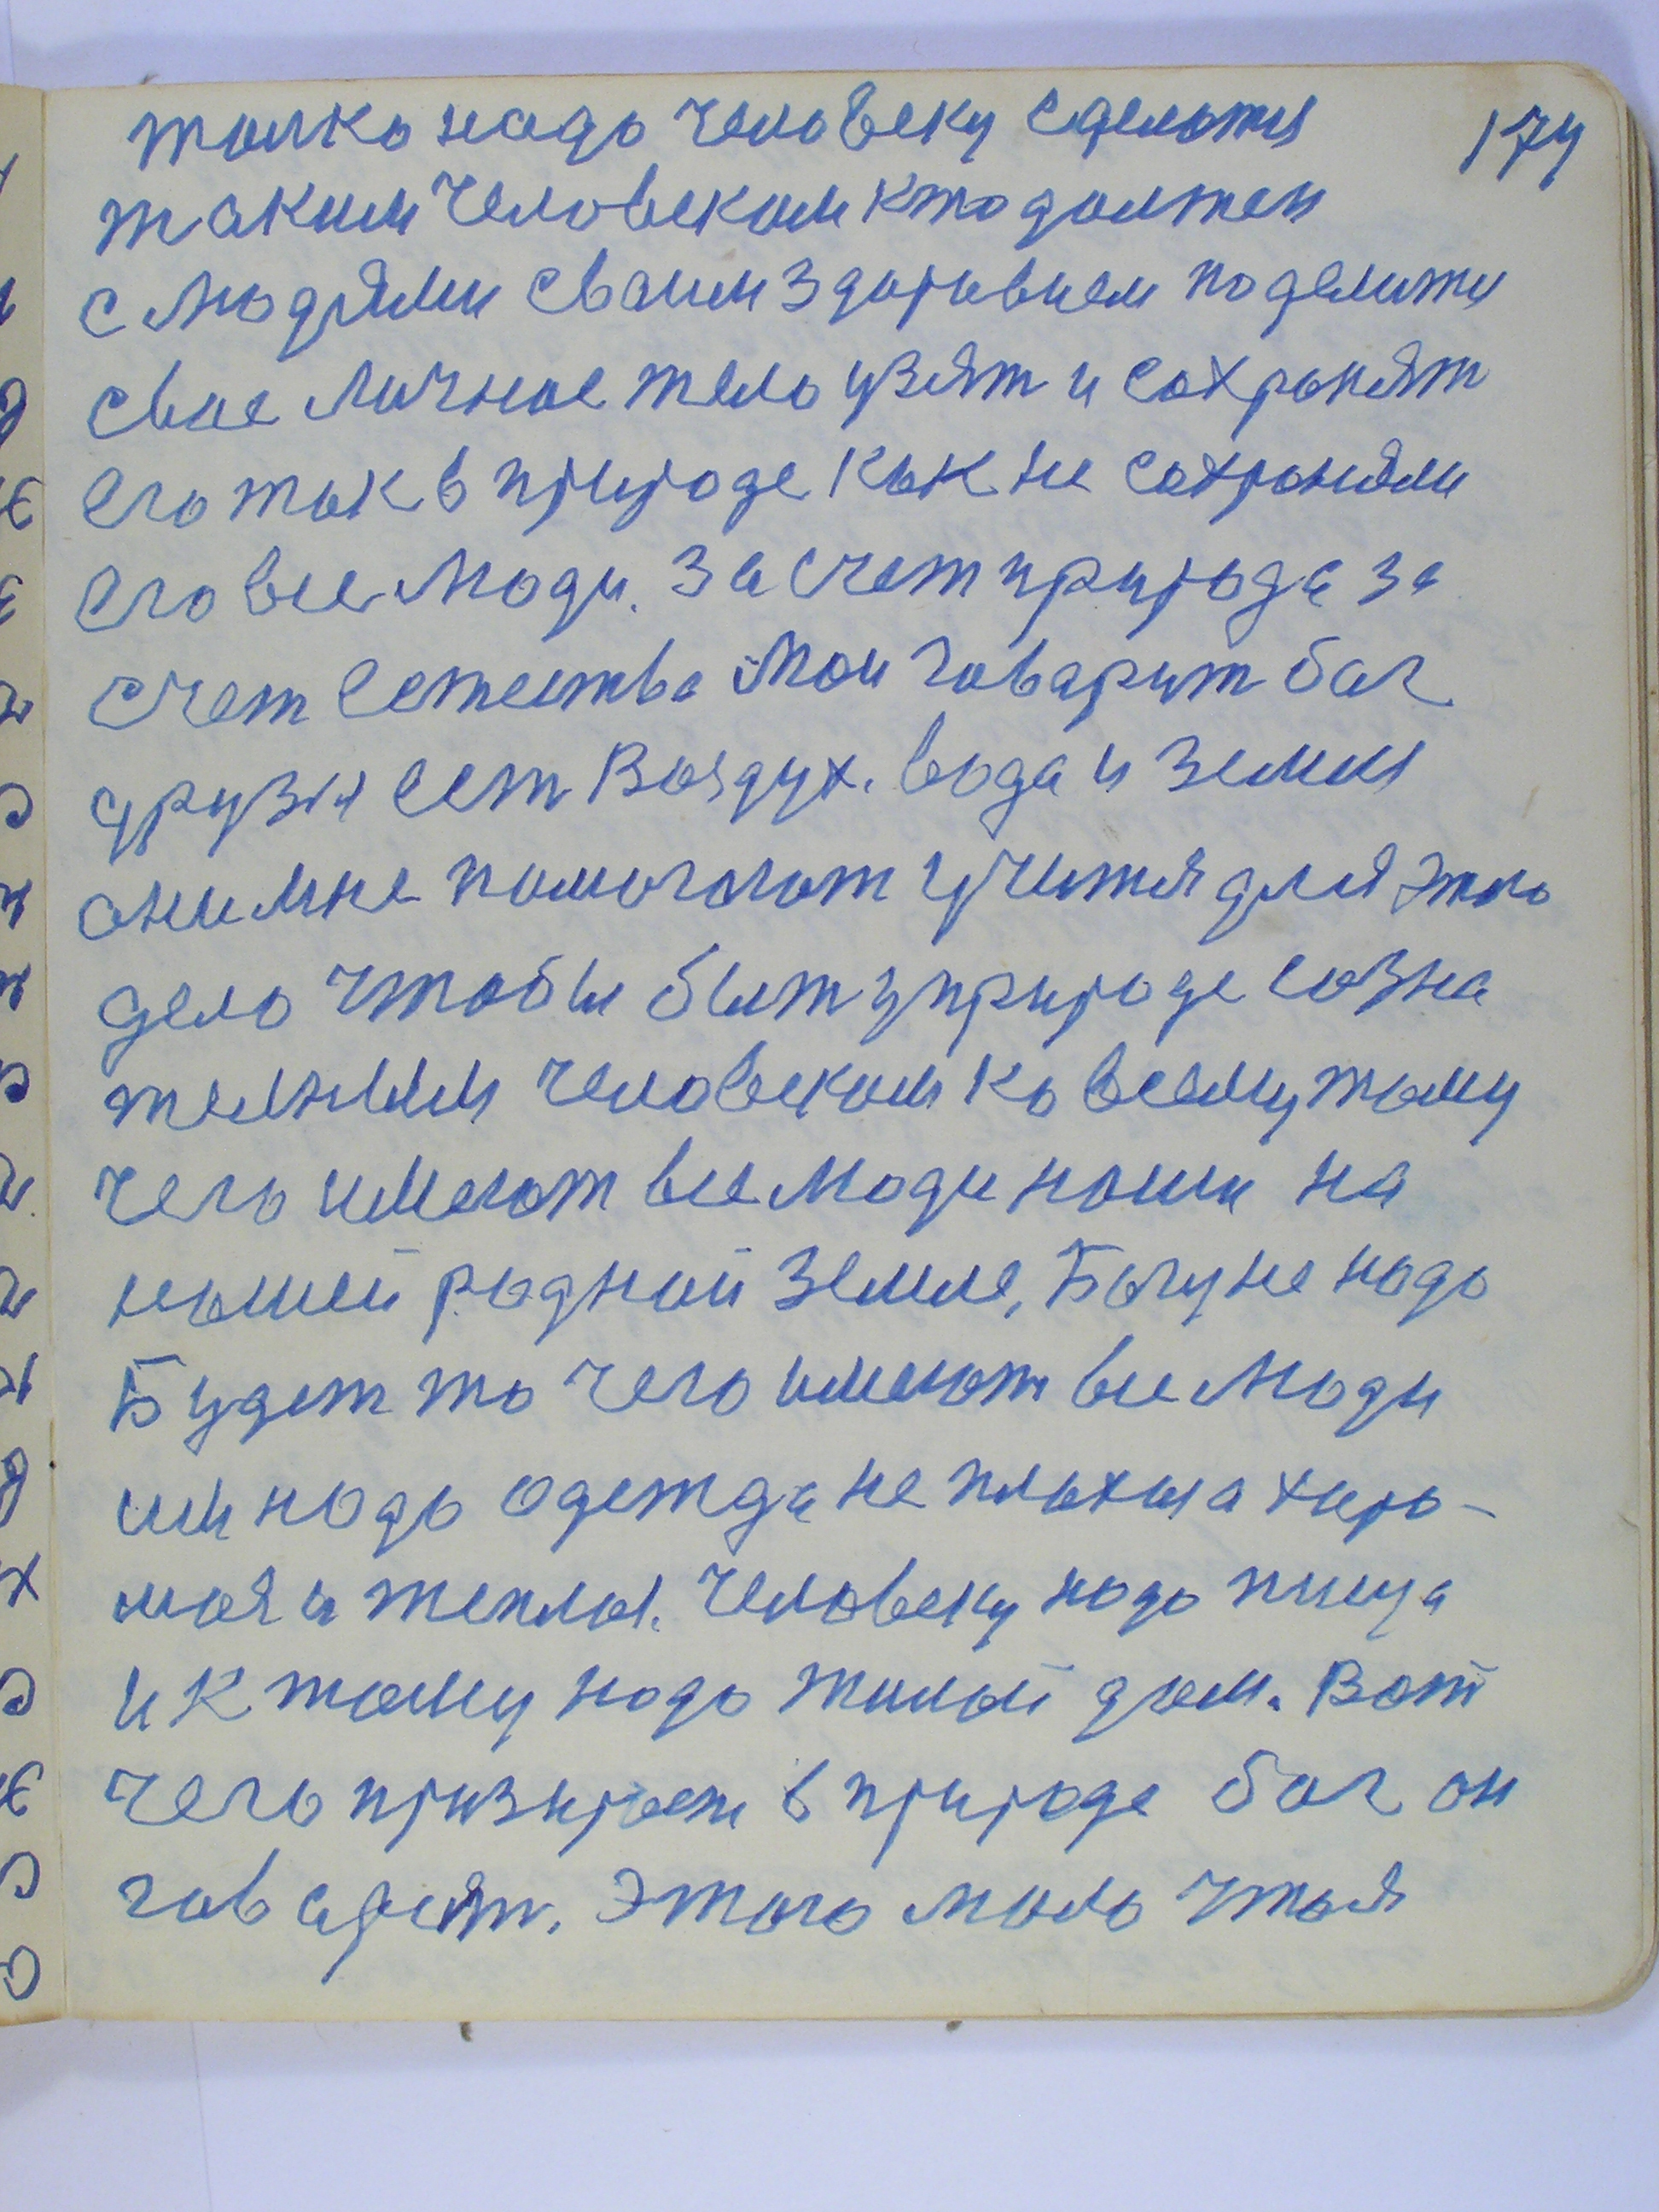 174
толко надо человеку сделатя
таким человеком кто должен
с людями сваим здоровием поделитя
свое личное тело узят и сохронят
его так в природе как не сохроняли
его все люди. За счет природа за
счет естества Мои говарит бог
друзя ест Воздух. вода и земля
они мне помогают учится для этого
дело чтобы быт у природе созна
телным человеком ко всему тому
чего имеют все люди наши на
нашей родной земле, Богу не надо
Будет то чего имеют все люди
им надо одежда не плохая а хоро-
шая и теплая. Человеку надо пища
и к тому надо жилой дом. Вот
чего призирает в природе бог он
говарит. Этого мало что я